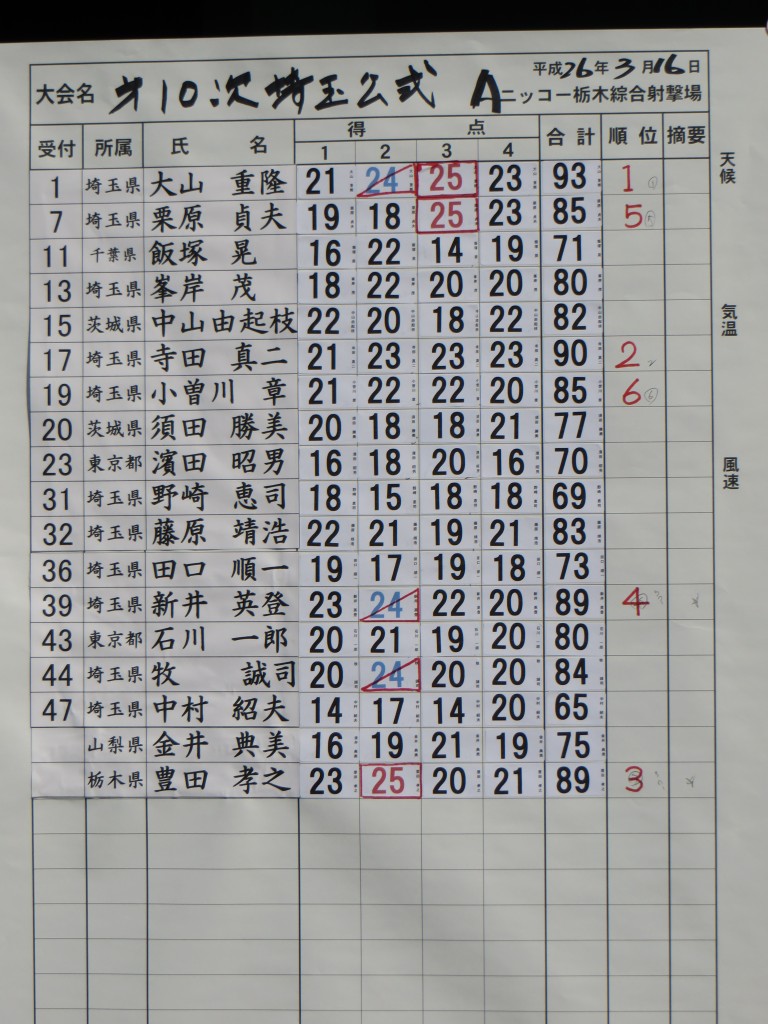 平成26年3月16日
大会名 第10次埼玉公式 A ニッコー栃木綜合射撃場
受付 所属 氏 名 得 点 合計 順位 摘要
1 2 3 4
1 埼玉県 大山 重隆 21 24 25 23 93 1
7 埼玉県 栗原 貞夫 19 18 25 23 85 5
11 千葉県 飯塚 晃 16 22 14 19 71
13 埼玉県 峯岸 茂 18 22 20 20 80
15 茨城県 中山由起枝 22 20 18 22 82
17 埼玉県 寺田 真二 21 23 23 23 90 2
19 埼玉県 小曽川 章 21 22 22 20 85 6
20 茨城県 須田 勝美 20 18 18 21 77
23 東京都 濱田 昭男 16 18 20 16 70
31 埼玉県 野崎 恵司 18 15 18 18 69
32 埼玉県 藤原 靖浩 22 21 19 21 83
36 埼玉県 田口 順一 19 17 19 18 73
39 埼玉県 新井 英登 23 24 22 20 89 4
43 東京都 石川 一郎 20 21 19 20 80
44 埼玉県 牧 誠司 20 24 20 20 84
47 埼玉県 中村 紹夫 14 17 14 20 65
山梨県 金井 典美 16 19 21 19 75
栃木県 豊田 孝之 23 25 20 21 89 3
天候
気温
風速